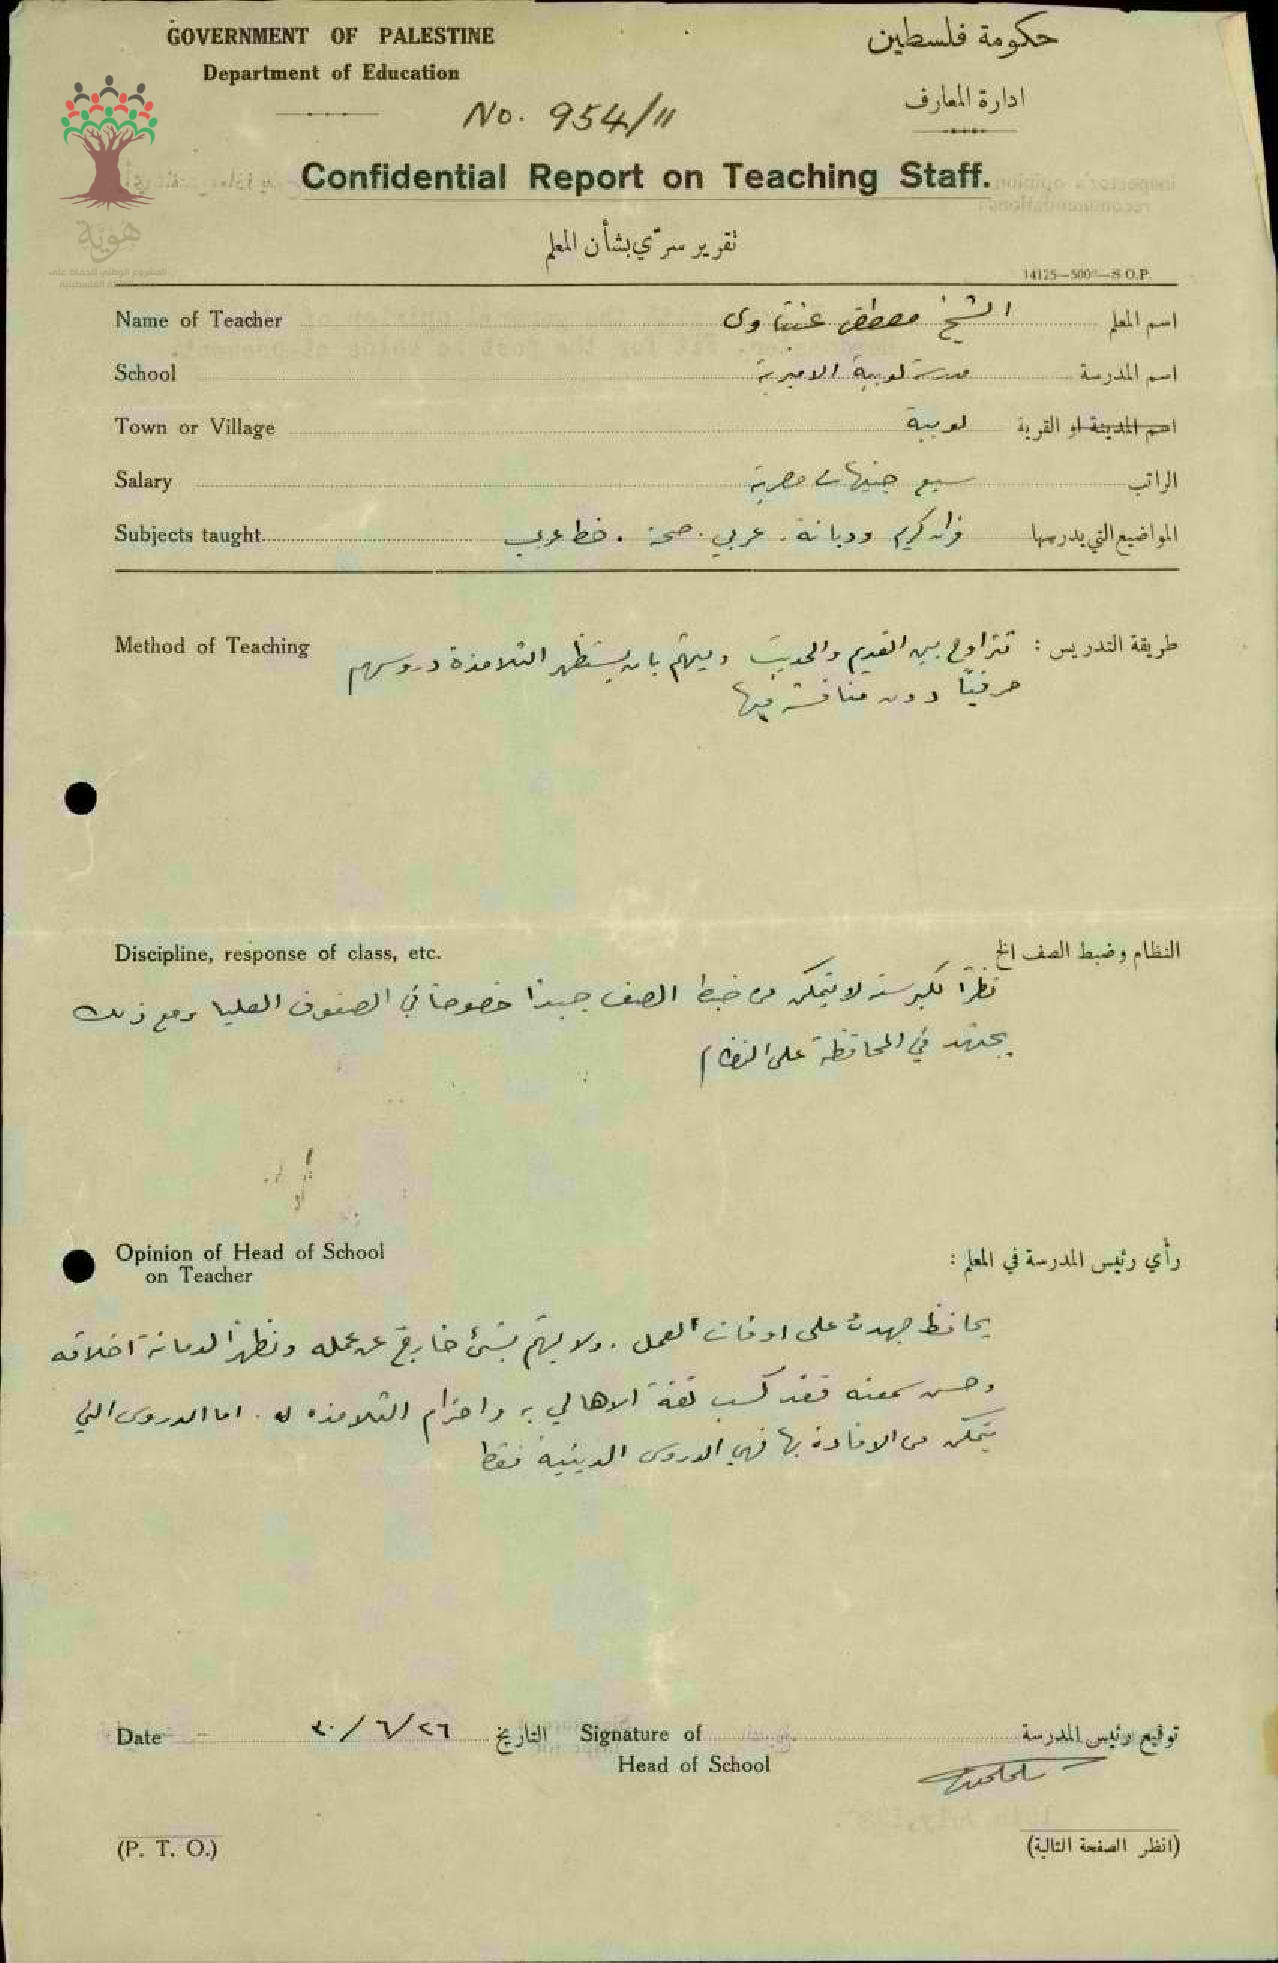 GOVERNMENT OF PALESTINE
Department of Education
حكومة فلسطين
ادارة المعارف
No. 954/11
Confidential Report on Teaching Staff.
تقرير سرّي بشأن المعلم
هوية
المشروع الوطني للحفاظ على
14125—500
—S.O.P.
Name of Teacher الشيخ مصطفى عنبتاوي اسم المعلم
School مدرسة لوبية الاميرية اسم المدرسة
Town or Village لوبية اسم المدينة او القرية
Salary سبع جنيهات مصرية الراتب
Subjects taught قران كريم وديانة. عربي. صحة. خط عربي المواضيع التي يدرسها
Method of Teaching طريقة التدريس : تتراوح بين القديم والحديث ويهتم بان يستظهر التلامذة دروسهم
حرفيًا دون مناقشة فيها
Discipline, response of class, etc. النظام وضبط الصف الخ
نظرًا لكبر سنه لا يتمكن من ضبط الصف جيدًا خصوصًا في الصفوف العليا ومع ذلك
يجتهد في المحافظة على النظام
Opinion of Head of School
on Teacher
رأي رئيس المدرسة في المعلم :
يحافظ جهده على اوقات العمل. ولا يهتم بشئ خارج عن عمله ونظرًا لدماثة اخلاقه
وحسن سمعته فقد كسب ثقة الاهالي به واحترام التلامذه له. اما الدروس التي
يتمكن من الافادة بها فهي الدروس الدينية فقط
Date ٣٠/٦/٢٦ التاريخ Signature of
Head of School
توقيع رئيس المدرسة
(P. T. O.) (انظر الصفحة التالية)